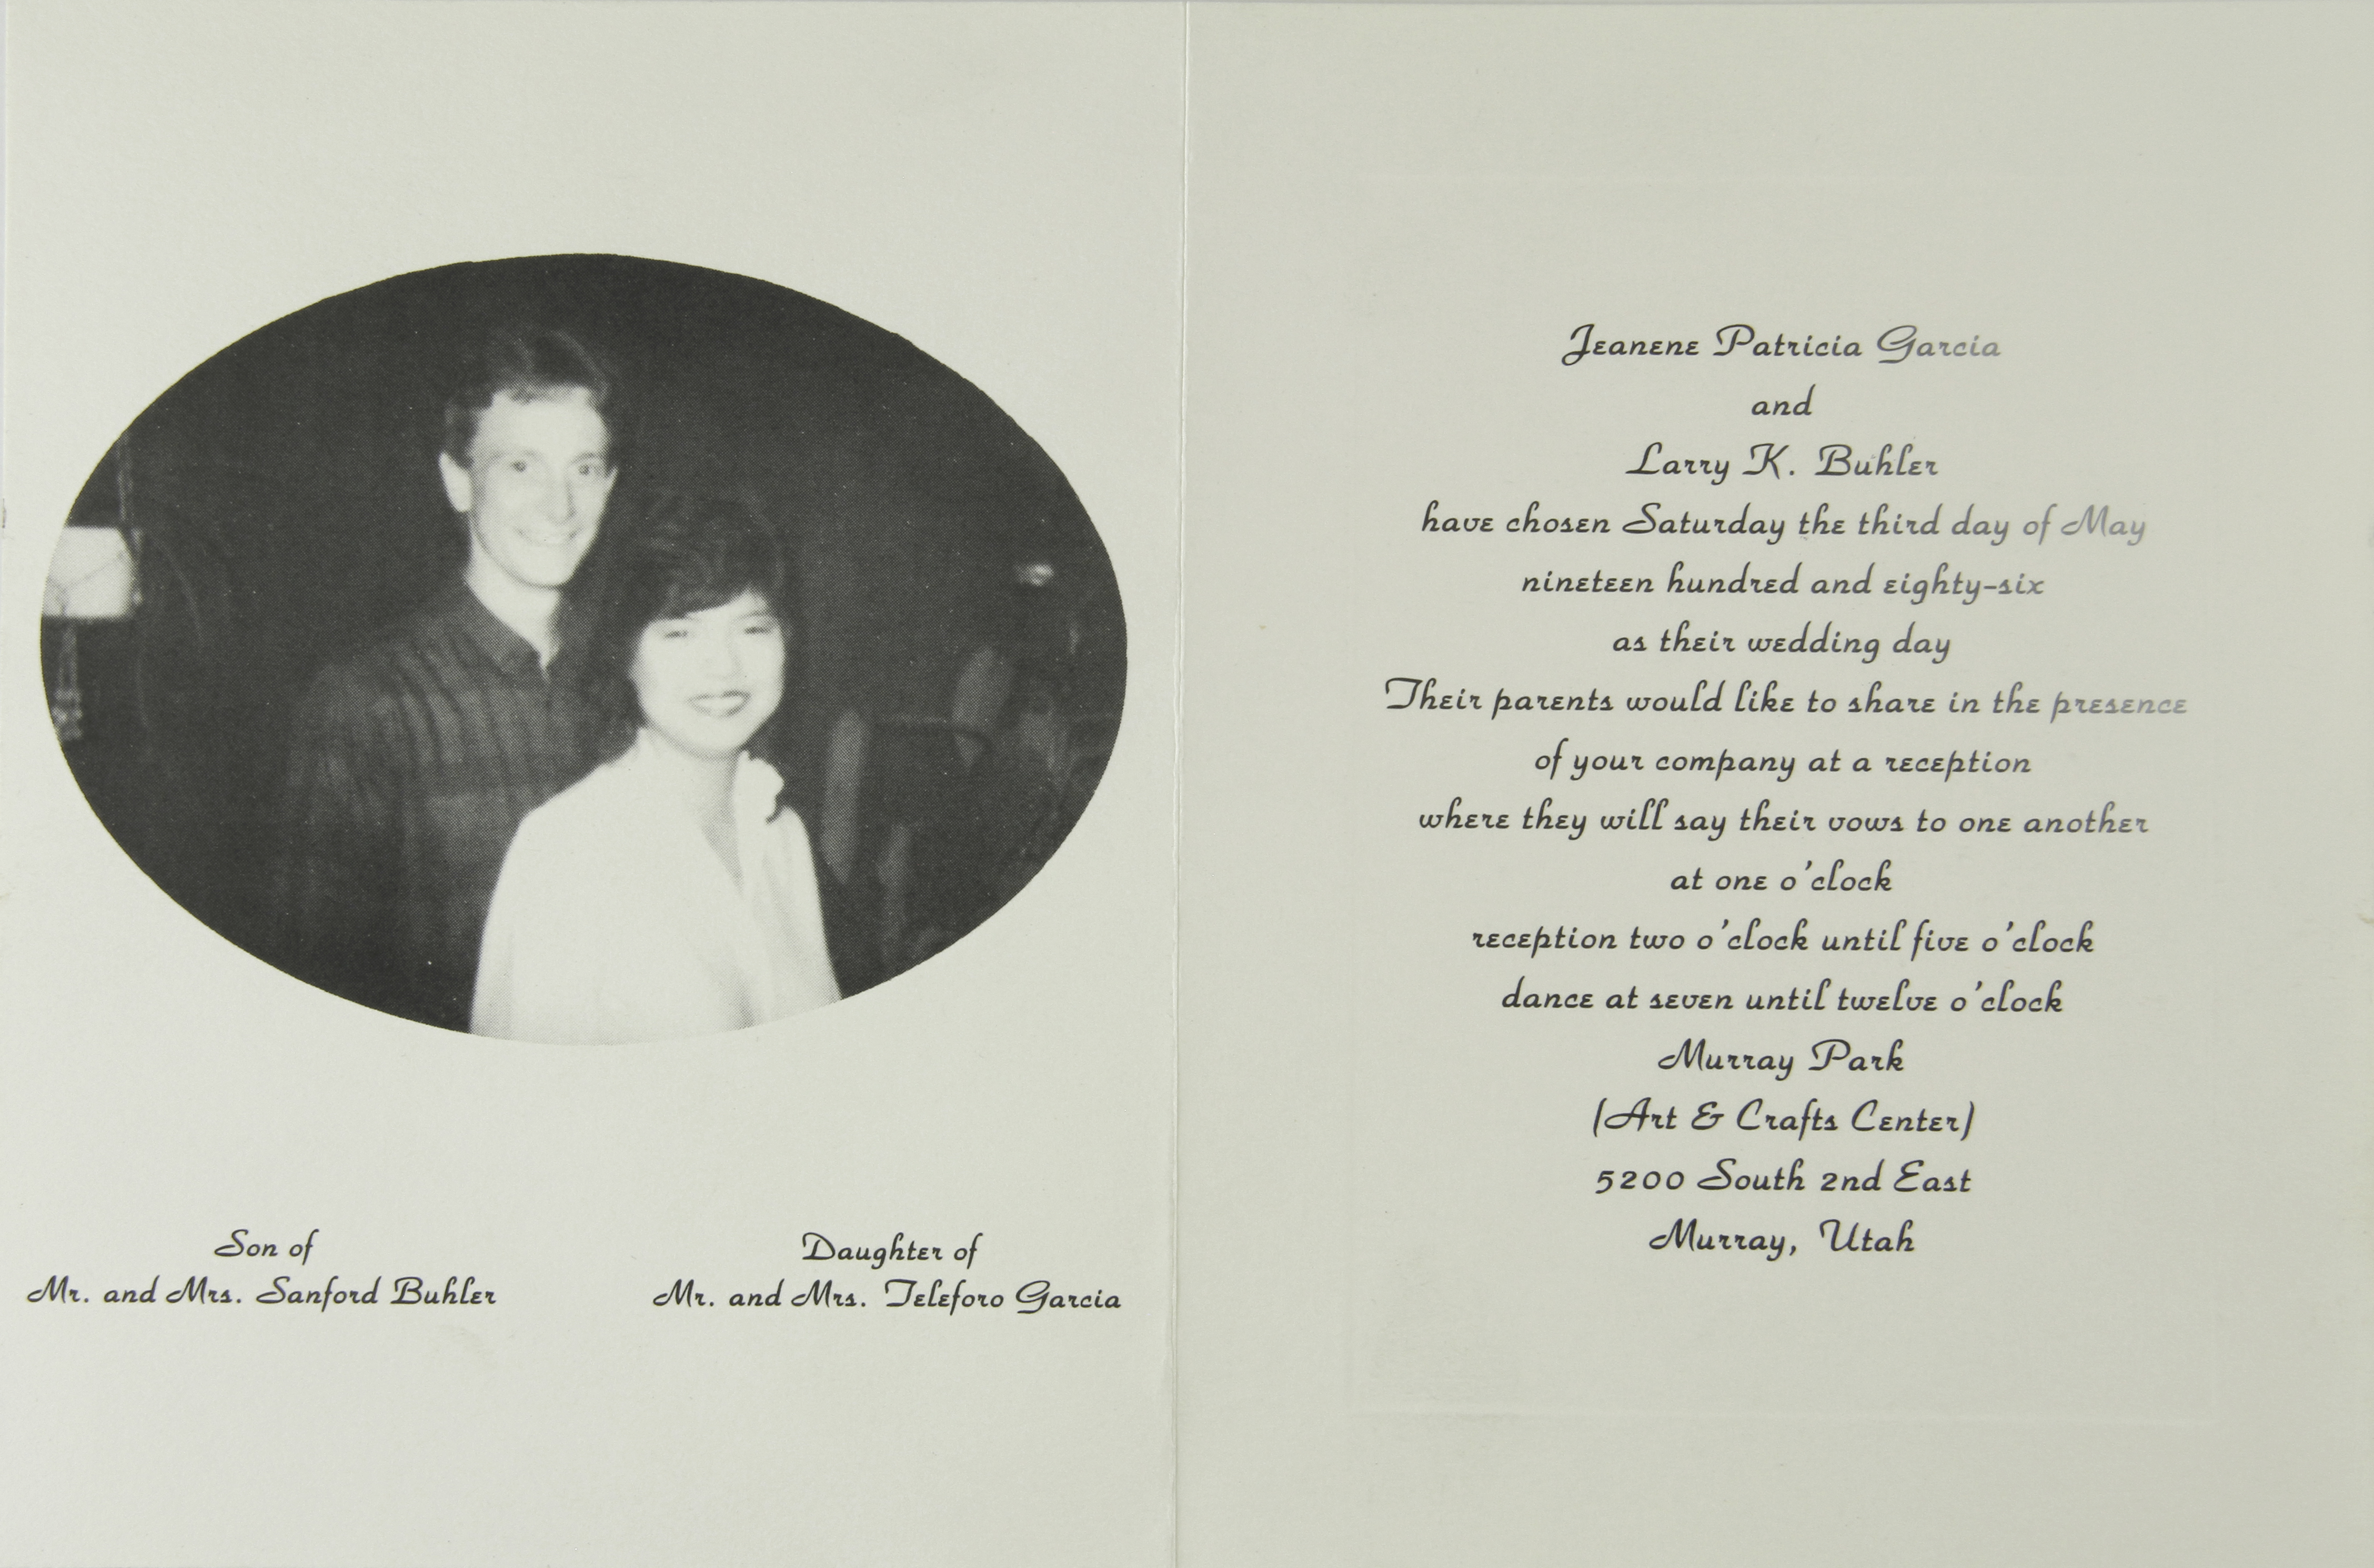 Son of
Mr. and Mrs. Sanford Buhler
Daughter of
Mr. and Mrs. Teleforo Garcia
Jeanene Patricia Garcia
and
Larry K. Buhler
have chosen Saturday the third day of May
nineteen hundred and eighty-six
as their wedding day
Their parents would like to share in the presence
of your company at a reception
where they will say their vows to one another
at one o'clock
reception two o'clock until five o'clock
dance at seven until twelve o'clock
Murray Park
(Art & Crafts Center)
5200 South 2nd East
Murray, Utah